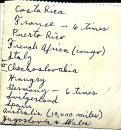 Costa Rica
France - 6 times
Puerto Rico
French Africa (Congo)
Italy
Czechoslovakia
Hungary
Germany - 6 times
Switzerland
Spain
Australia (10,000 miles)
Yugoslavia & Wales